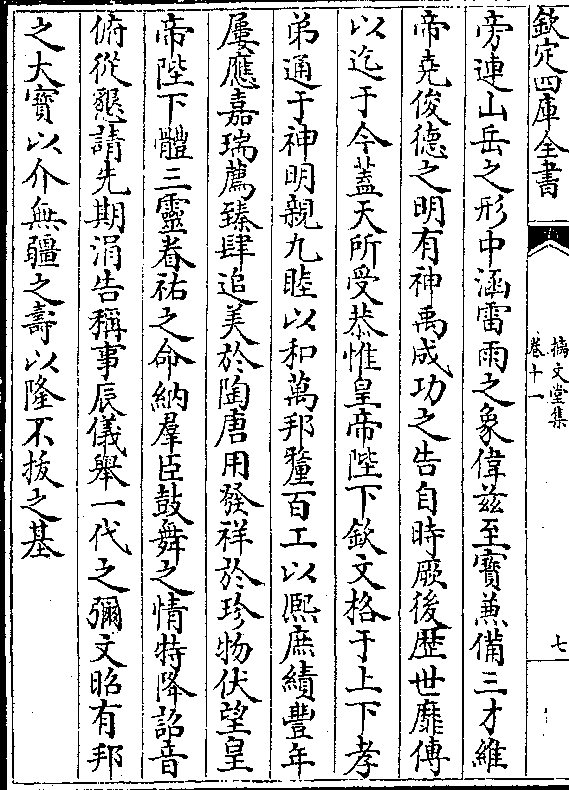 欽定四庫全書
摛文堂集
卷十一
七
旁連山岳之形中涵雷雨之象偉兹至寳兼備三才維
帝堯俊徳之明有神禹成功之告自時厥後歴世靡傳
以迄于今蓋天所受恭惟皇帝陛下欽文格于上下孝
弟通于神明親九睦以和萬邦釐百工以熈庶績豐年
屢應嘉瑞薦臻肆追美於陶唐用發祥於珍物伏望皇
帝陛下體三靈眷祐之命納羣臣鼓舞之情特降詔音
俯從懇請先期涓告稱事辰儀舉一代之彌文昭有邦
之大寳以介無疆之壽以隆不拔之基